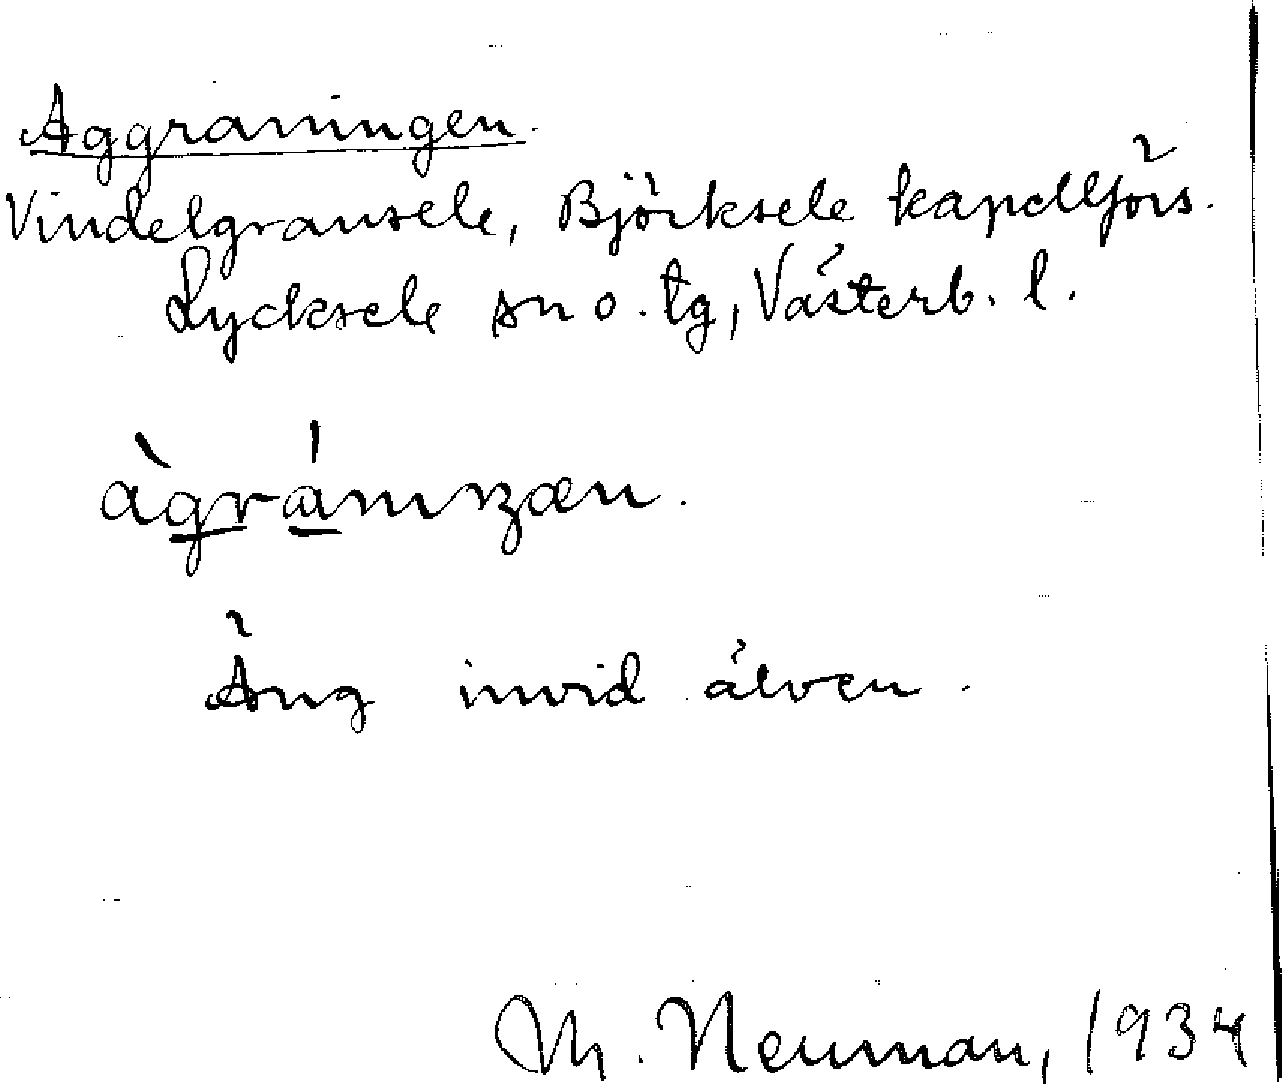 Aggraningen.
Vindelgransele, Björksele kapellförs.
Lycksele sn o. tg, Västerb. l.
Äng invid älven.
M. Neuman, 1934